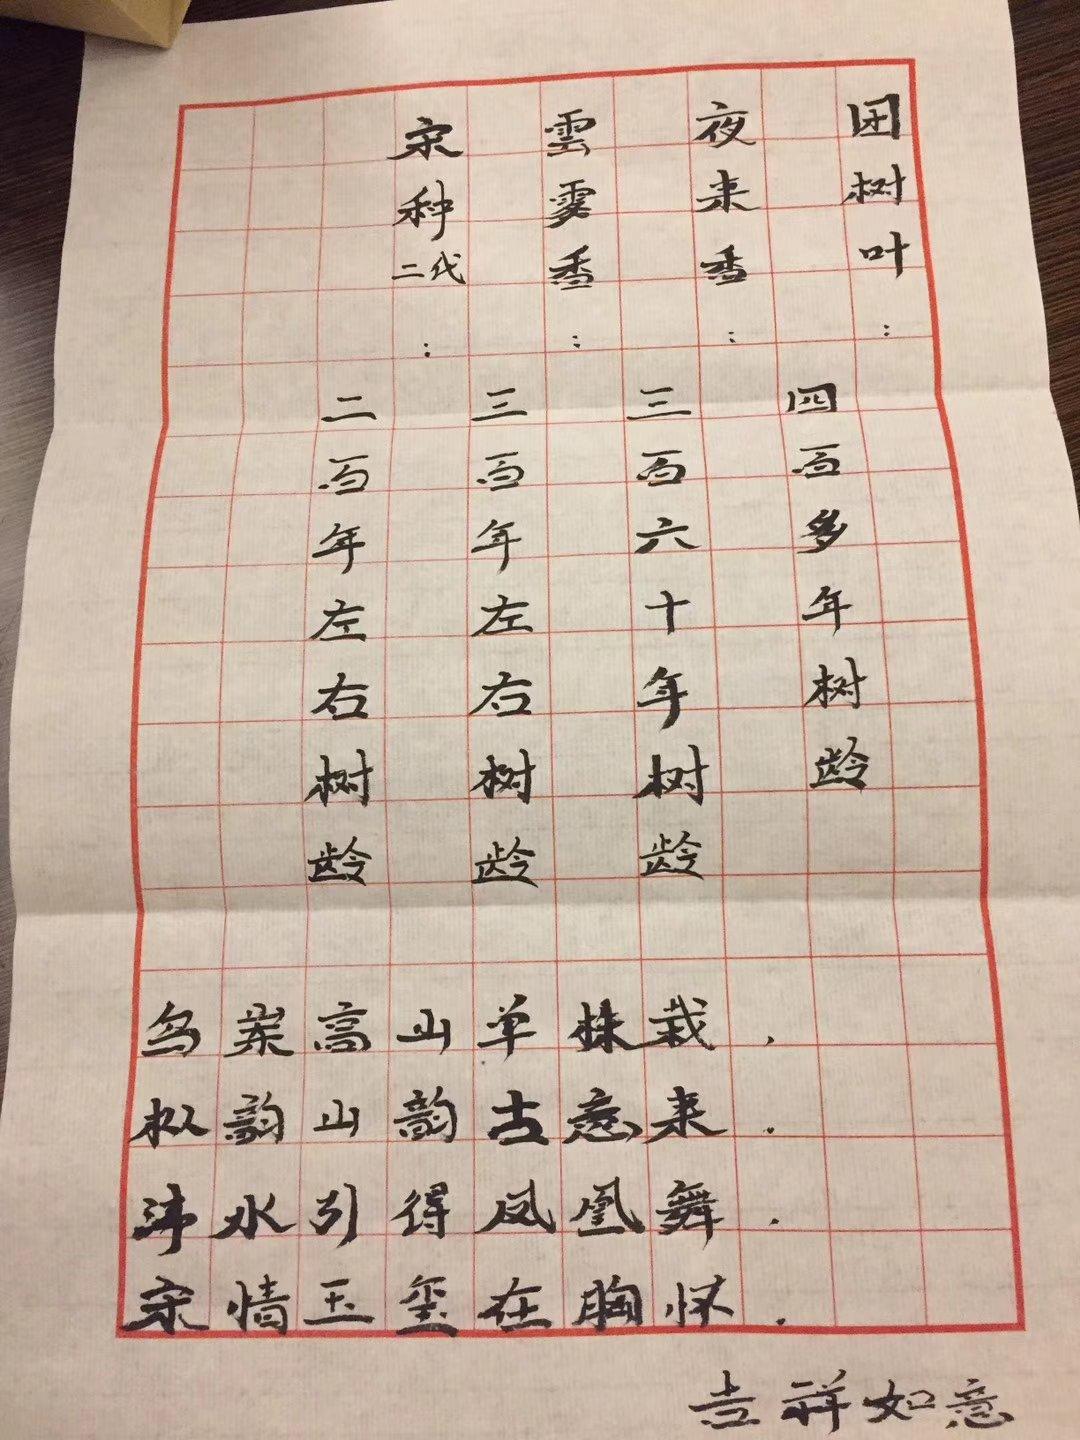 团树叶：
四百多年树龄
夜来香：
三百六十年树龄
雲雾香：
三百年左右树龄
宋种二代：
二百年左右树龄
乌岽高山单株栽.
枞韵山韵古意来.
沸水引得凤凰舞.
宋情玉玺在胸怀.
吉祥如意